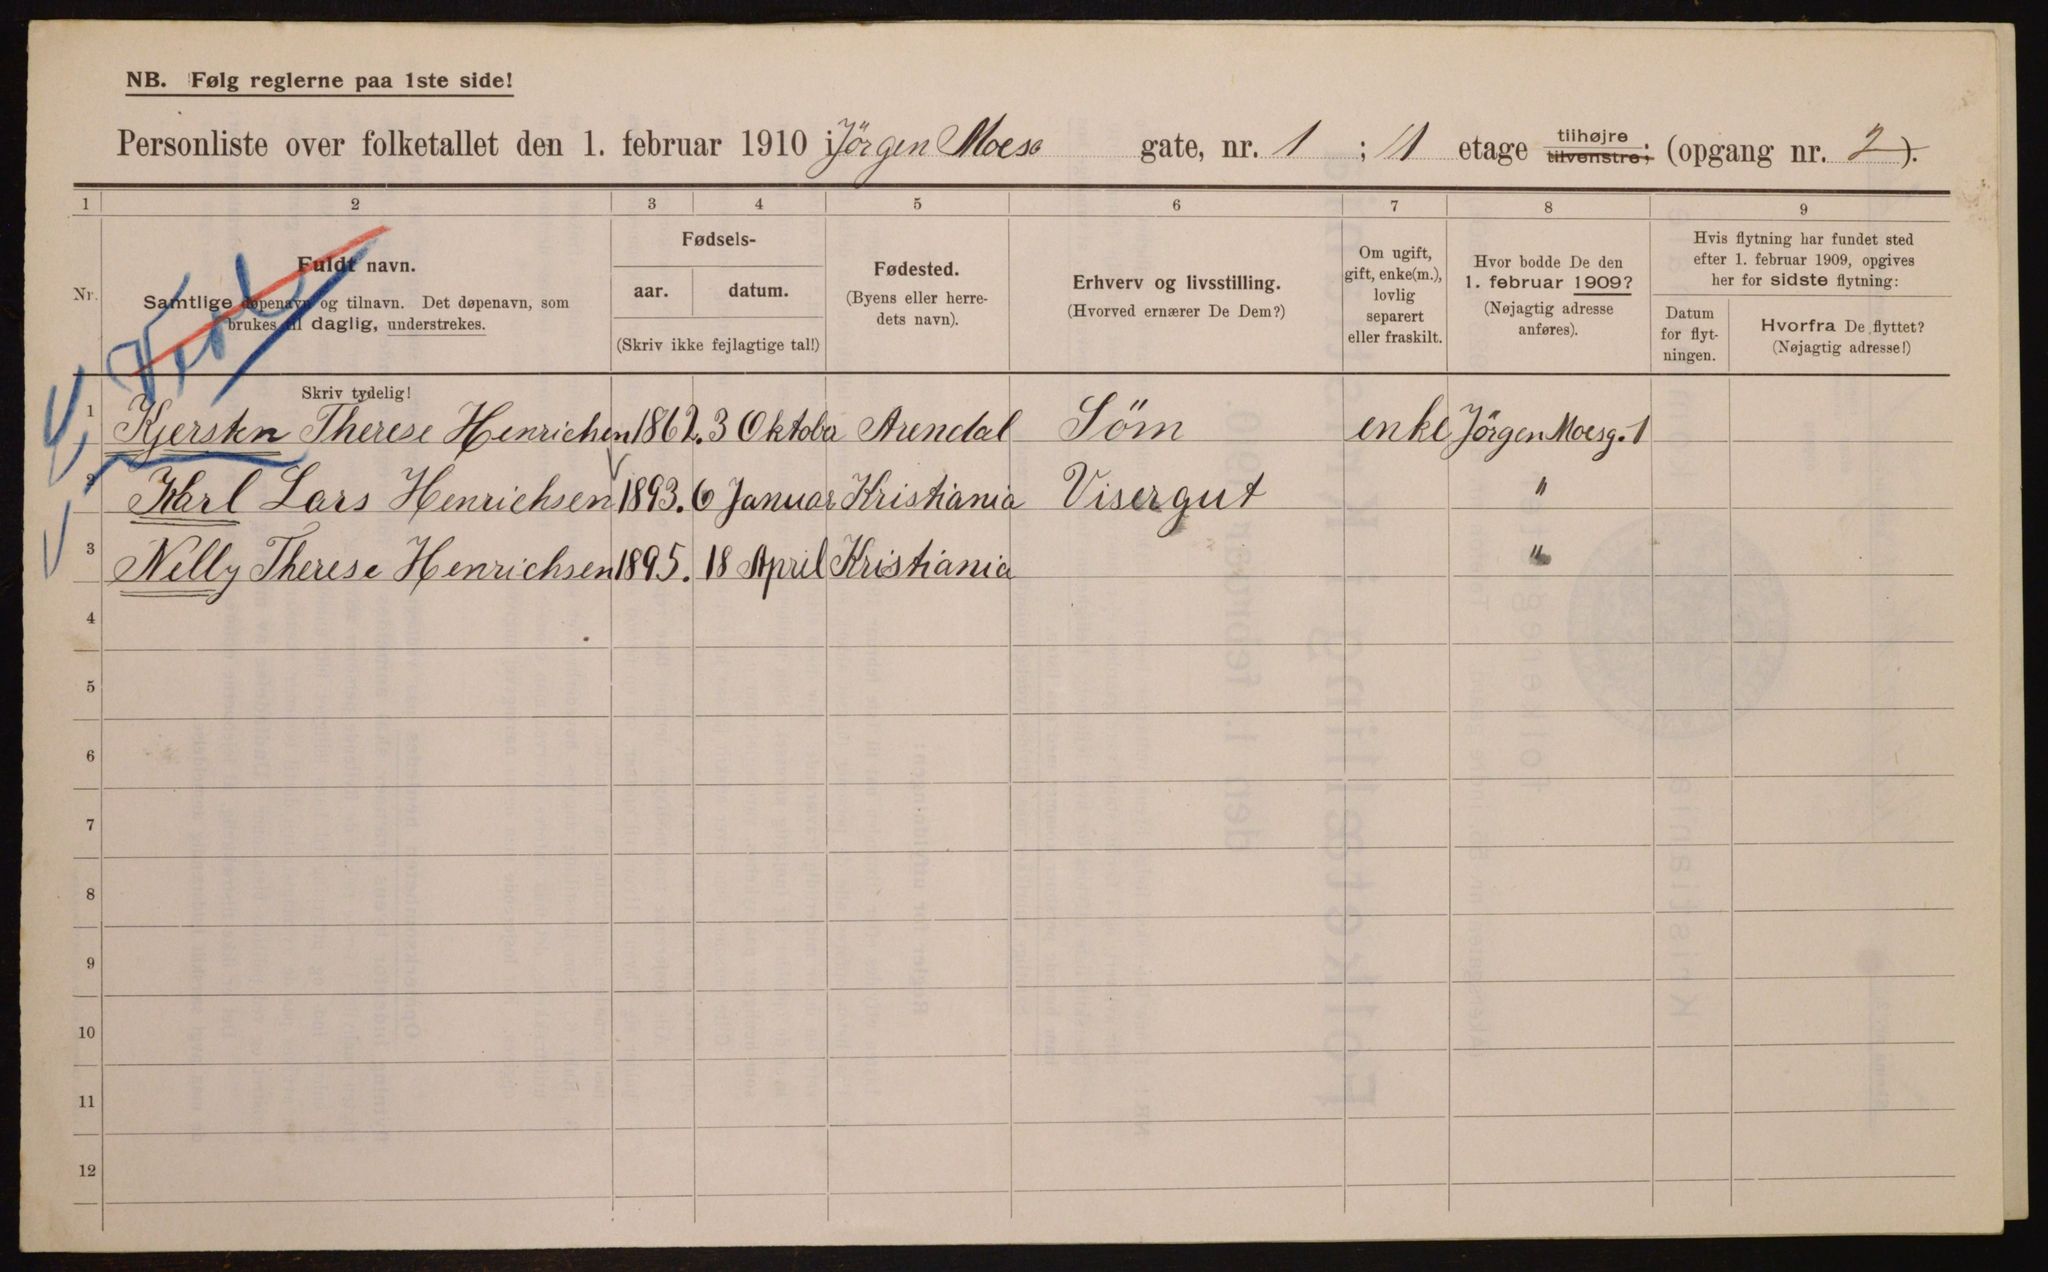 NB. Følg reglerne paa 1ste side!
Personliste over folketallet den 1. februar 1910 i Jörgen Moesg gate, nr. 1 ; 1 etage tilhøjre tilvenstre; (opgang nr. 2).
1 2 3 4 5 6 7 8 9
Nr.
Fuldt navn.
Samtlige døpenavn og tilnavn. Det døpenavn, som
brukes til daglig, understrekes.
Skriv tydelig!
Fødsels-
aar. datum.
(Skriv ikke fejlagtige tal!)
Fødested.
(Byens eller herre-
dets navn).
Erhverv og livsstilling.
(Hvorved ernærer De Dem?)
Om ugift,
gift, enke(m.),
lovlig
separert
eller fraskilt.
Hvor bodde De den
1. februar 1909?
(Nøjagtig adresse
anføres).
Hvis flytning har fundet sted
efter 1. februar 1909, opgives
her for sidste flytning:
Datum
for flyt-
ningen.
Hvorfra De flyttet?
(Nøjagtig adresse!)
1 Kjersten Therese Henrichen 1862. 3 Oktober Arendal Söm enke Jörgen Moesg. 1
2 Karl Lars Henrichsen 1893. 6 Januar Kristiania Visergut "
3 Nelly Therese Henrichsen 1895. 18 April Kristiania "
4
5
6
7
8
9
10
11
12